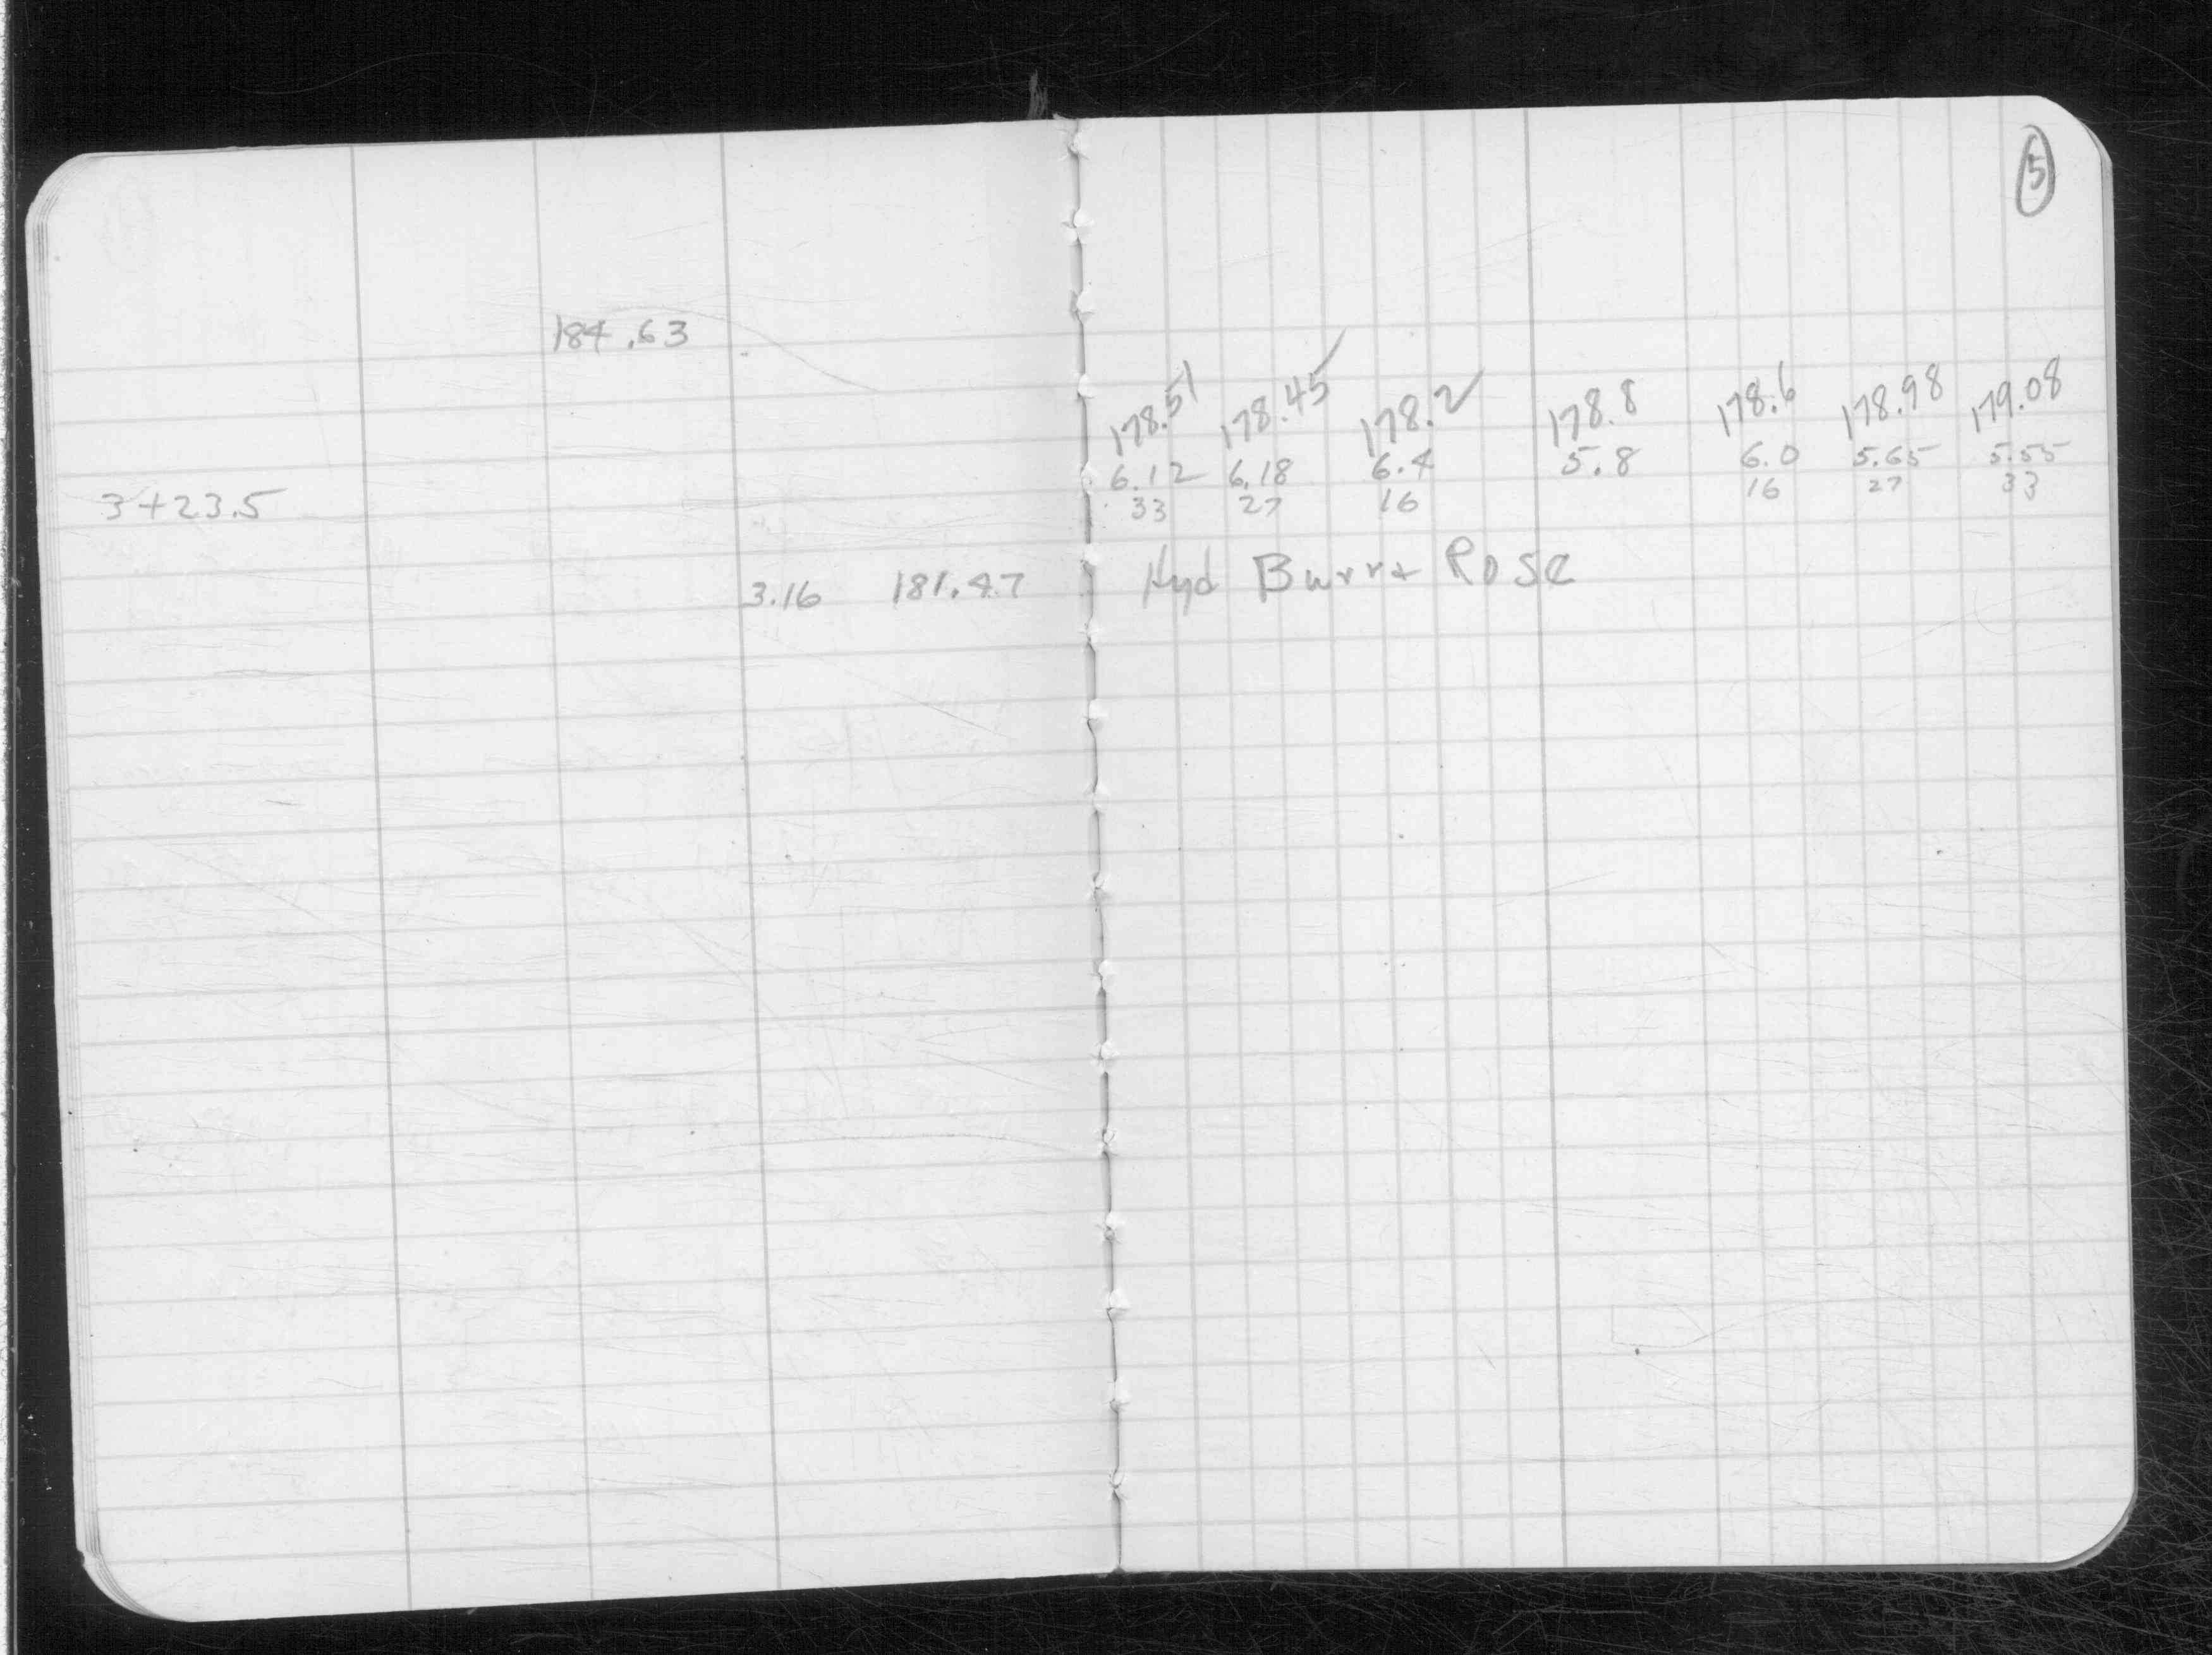 5
184.63
178.51 178.45 178.2 178.8 178.6 178.98 179.08
6.12 6.18 6.4 5.8 6.0 5.65 5.55
3+23.5 33 27 16 16 27 33
3.16 181.47 Hyd Burr + Rose